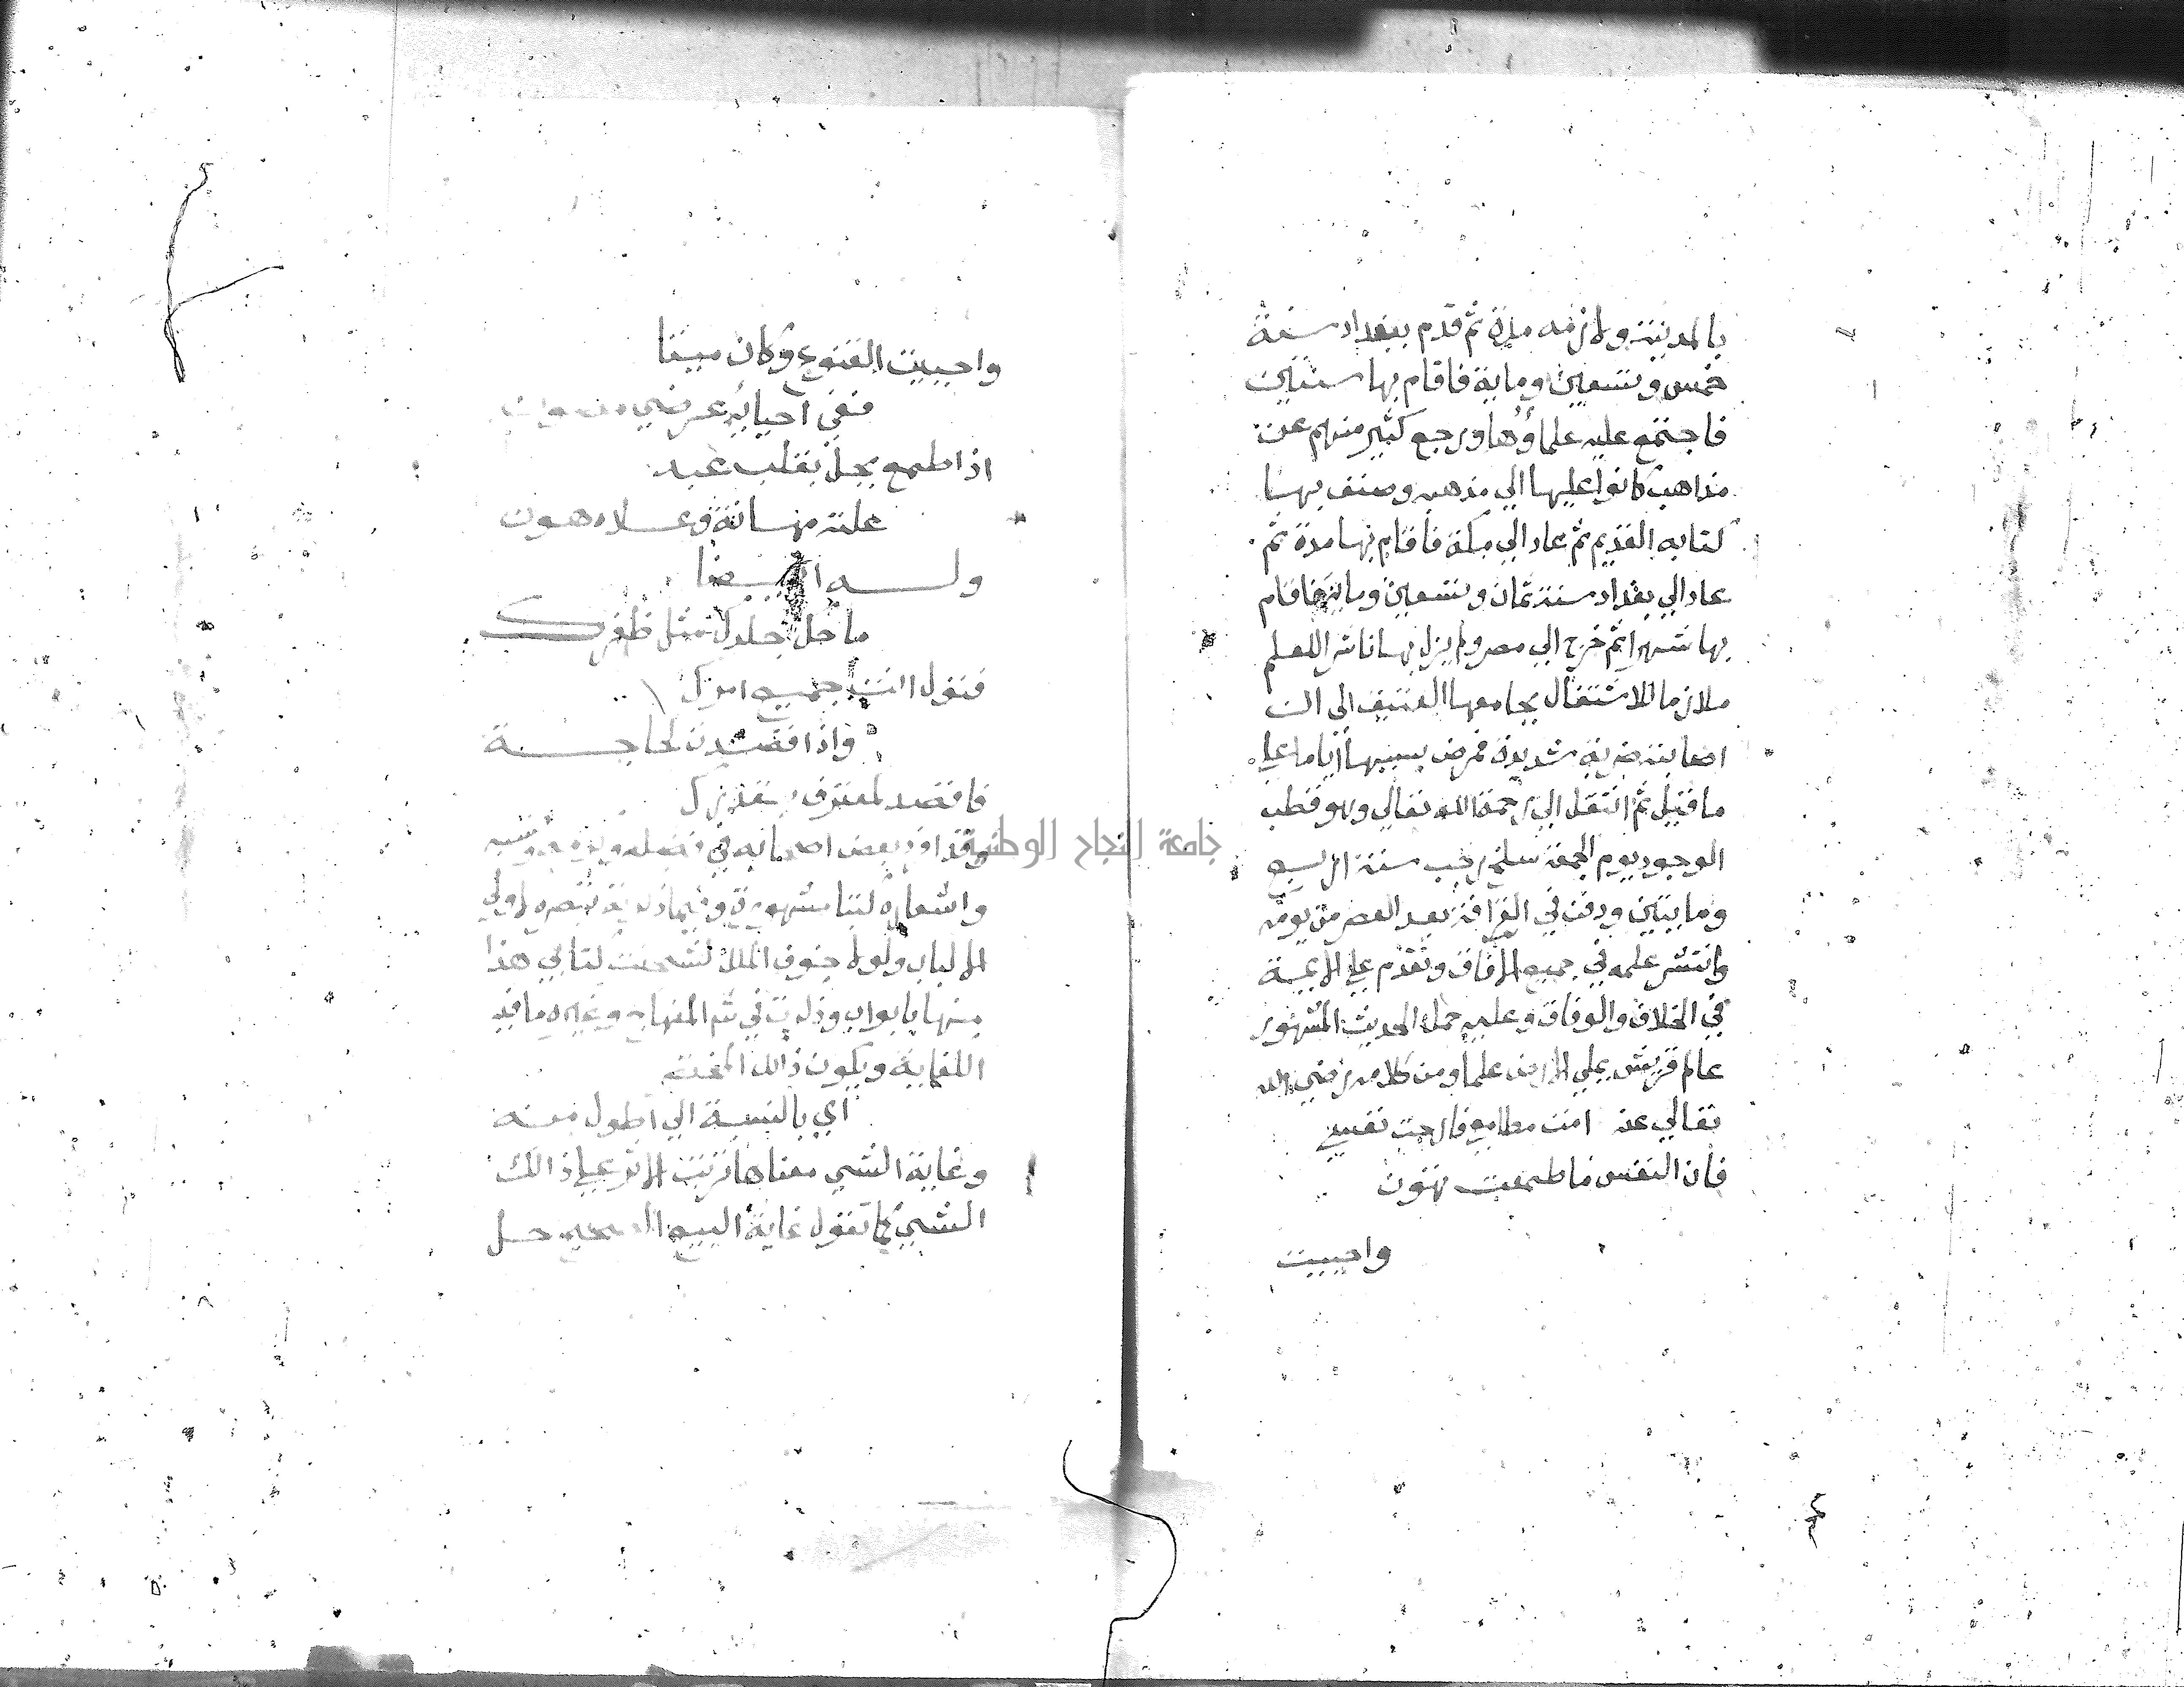 بالمدينة ولازمه مدة ثم قدم ببغداد سنة
خمس وتسعين وماية فاقام بها سنتين
فاجتمع عليه علماؤها ورجع كثير منهم عن
مذاهب كانوا عليها الي مذهبه وصنف بها
كتابه القديم ثم عاد الي مكة فاقام بها مدة ثم
عاد الي بغداد سنة ثمان وتسعين وماية فاقام
بها شهرا ثم خرج الي مصر ولم يزل بها ناشرا للعلم
ملازما للاشتغال بجامعها العتيق الي ان
اصابته ضربة شديدة فمرض بسببها اياما علي
ما قيل ثم انتقل الي رحمة الله تعالي وهو قطب
الوجود يوم الجمعة سلخ رجب سنة اربع
ومايتين ودفن في القرافة بعد العصر من يومه
وانتشر علمه في جميع الافاق وتقدم علي الايمة
في الخلاف والوفاق وعليه حمل الحديث المشهور
عالم قريش يملي الارض علما ومن كلامه رضي الله
تعالي عنه امت مطامعي فارحت نفسي
فان النفس ما طمعت تهون
واحييت
واحييت القنوع وكان ميتا
ففي احيايه عرضي مصون
اذا طمع يحل بقلب عبد
علته مهانة وعلاه هون
وله ايضا
ما حك جلدك مثل ظفرك
فتول انت جميع امرك
واذا قصدت لحاجة
فاقصد لمعترف بقدرك
جامعة النجاح الوطنية
وقد افرد بعض اصحابه في فضله وكرمه ونسبه
واشعاره كتبا مشهورة وفيما ذكرته تبصرة لاولي
الالباب ولولا خوف الملل لشحنت كتابي هذا
منها بابواب وذكرت في شرح المنهاج وغيره ما فيه
الكفاية ويكون ذالك المختصر
اي بالنسبة الي اطول منه
وغاية الشي معناها ترتب الاثر علي ذالك
الشي كما تقول غاية البيع الصحيح حل